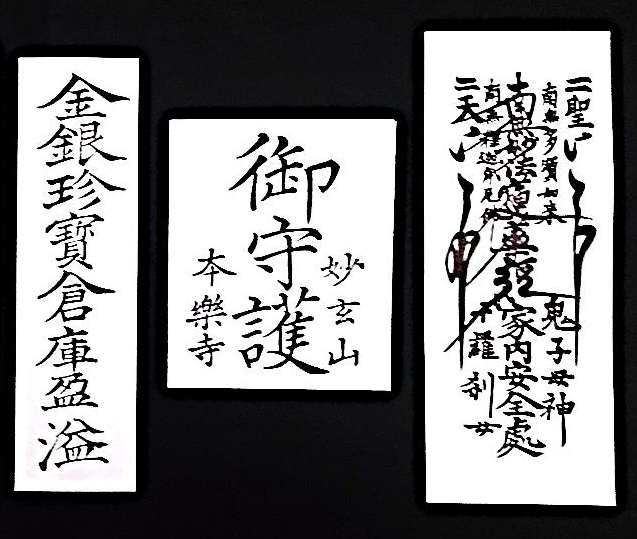 二聖
南無多寶如来
鬼子母神
南無妙法蓮華經
家内安全處
南無釋迦牟尼佛
十羅刹女
二天
妙玄山
御守護
本樂寺
金銀珍寶倉庫盈溢